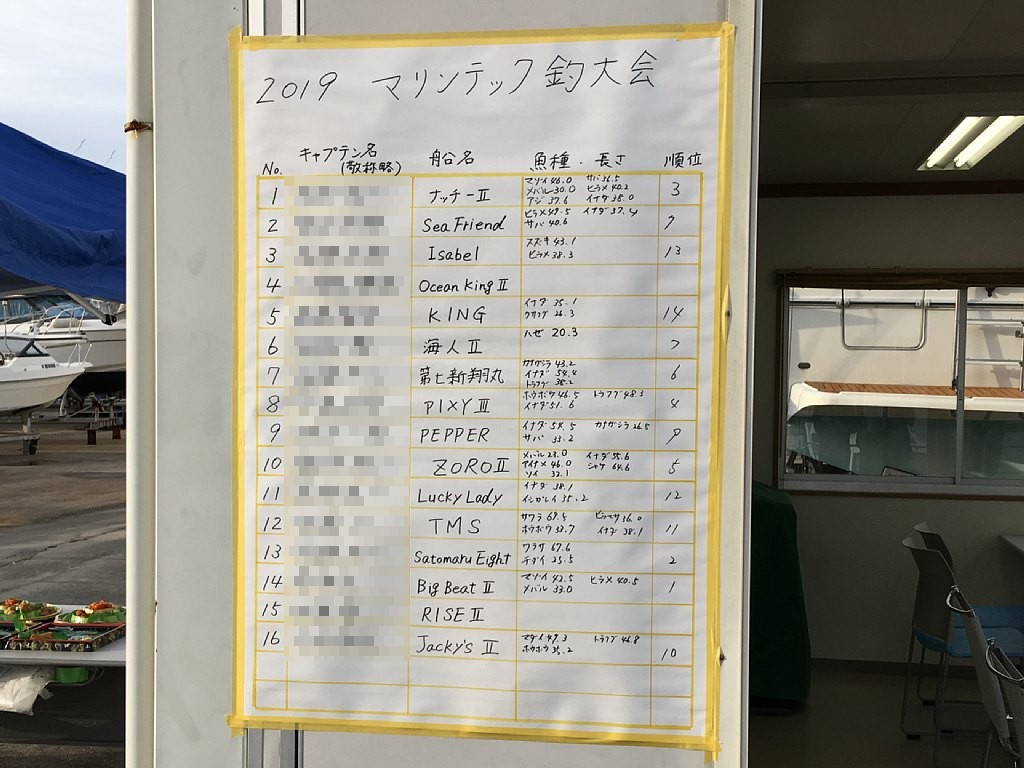 2019 マリンテック釣大会
No. キャプテン名 (敬称略) 船名 魚種・長さ 順位
1 ナッチーII マゾイ 46.0 サバ 36.5 3
メバル 30.0 ヒラメ 40.2
アジ 37.6 イナダ 35.0
2 Sea Friend ヒラメ 49.5 イナダ 37.4
サバ 40.6
3 Isabel スズキ 43.1 13
ヒラメ 38.3
4 Ocean King II
5 KING イナダ 35.1 14
26.3
6 海人II ハゼ 20.3 7
7 第七新翔丸 カナガシラ 43.2 6
イナダ 54.4
トラフグ 38.2
8 PIXY III ホウボウ 46.5 トラフグ 48.3 4
イナダ 51.6
9 PEPPER イナダ 54.5 カナガシラ 26.5 9
サバ 33.2
10 ZORO II メバル 28.0 イナダ 55.6 5
アイナメ 46.0 シャケ 64.6
ソイ 32.1
11 Lucky Lady イナダ 38.1 12
イシガレイ 35.2
12 TMS サワラ 69.5 36.0 11
ホウボウ 33.7 イナダ 38.1
13 Satomaru Eight ワラサ 67.6 2
チダイ 25.5
14 Big Beat II マゾイ 42.5 ヒラメ 40.5 1
メバル 33.0
15 RISE II
16 Jacky's II マダイ 49.3 トラフグ 46.8 10
ホウボウ 35.2